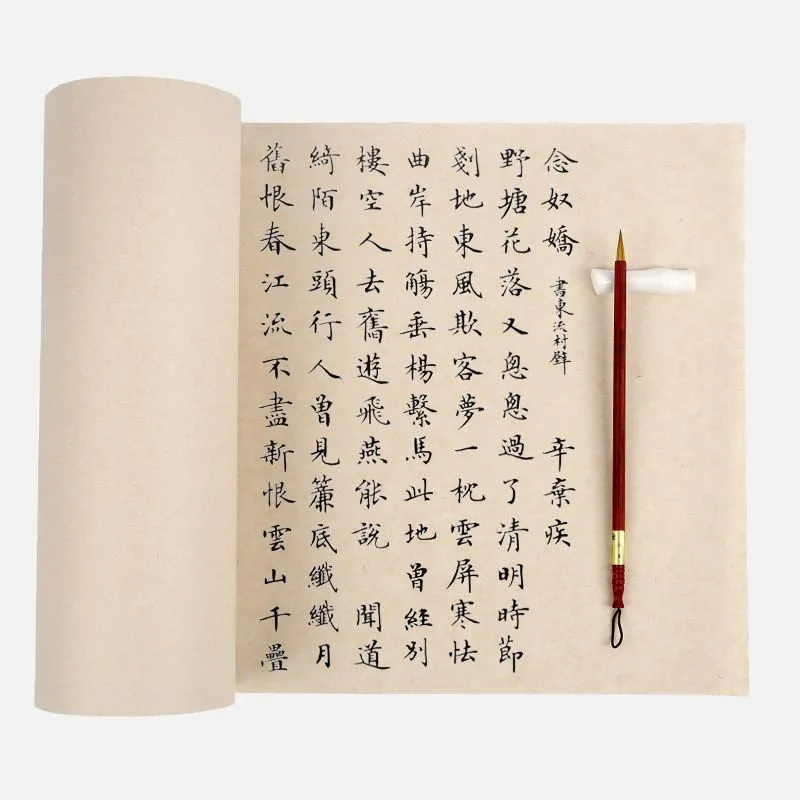 念奴嬌 書東流村壁 辛棄疾
野塘花落又悤悤過了清明時節
剗地東風欺客夢一枕雲屏寒怯
曲岸持觴垂楊繫馬此地曾經別
樓空人去舊遊飛燕能說 聞道
綺陌東頭行人曾見簾底纖纖月
舊恨春江流不盡新恨雲山千疊